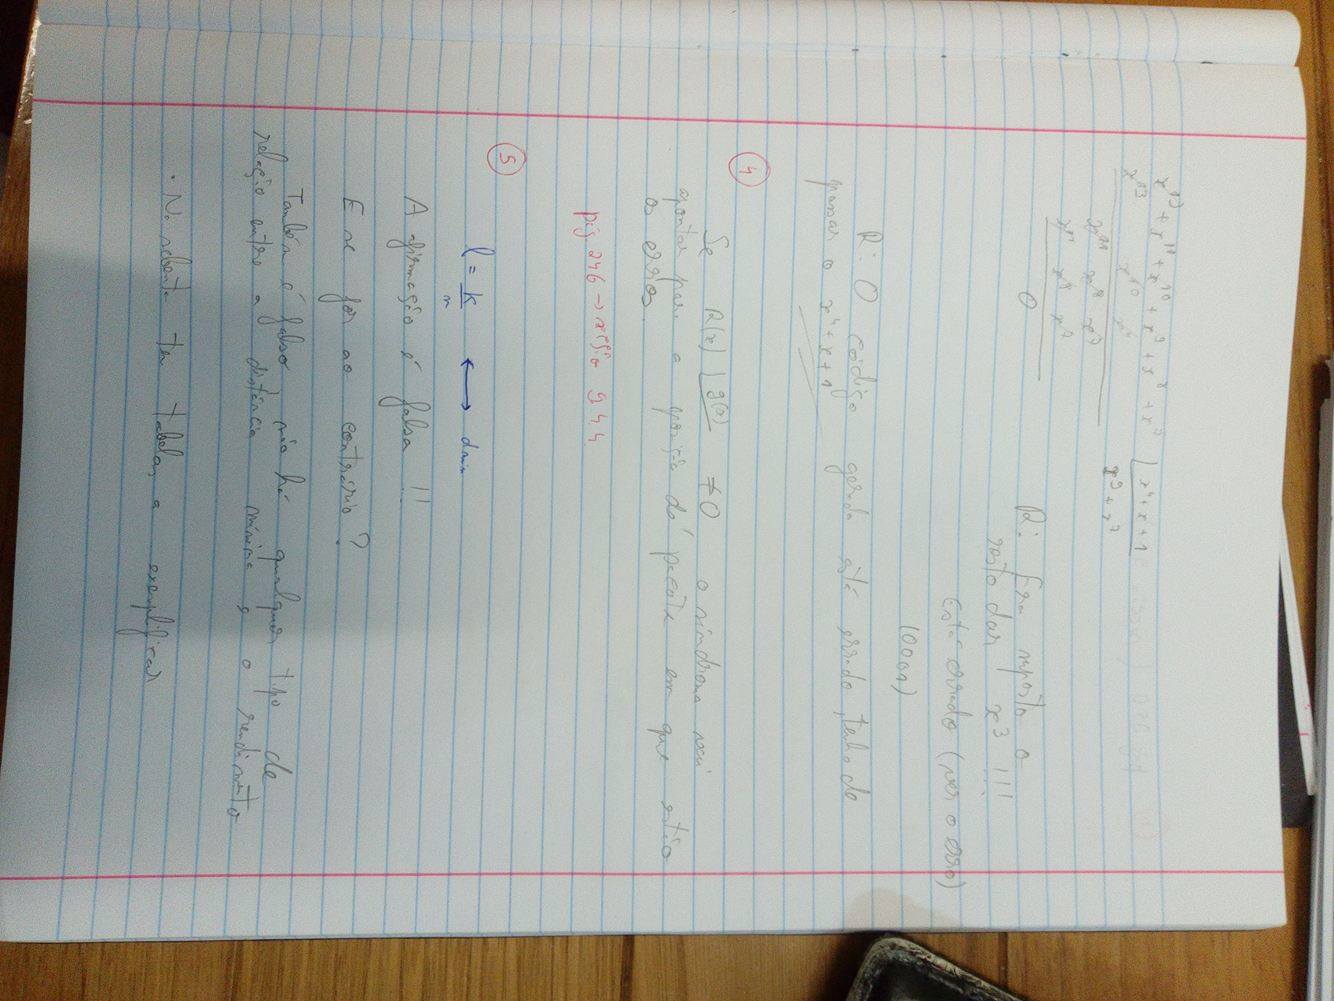 x¹³ + x¹¹ + x¹⁰ + x⁹ + x⁸ + x⁷ | x⁴ + x + 1
x¹³ x¹⁰ x⁹ x⁹ + x⁷
x¹¹ x⁸ x⁷
x¹¹ x⁸ x⁷
0
R: Era suposto o
resto dar x³ !!!
Está errado (ver o erro)
(0000)
R: O código gerado está errado, tenho de
passar o x⁴ + x + 1
④
Se R(x) | g(x) ≠ 0 o síndroma vai
apontar para a posição do pacote em que estão
os erros
pág 246 → versão 9.4.4
⑤
l = k/n ⟷ dmin
A afirmação é falsa !!!
E se for ao contrário?
Também é falso não há qualquer tipo de
relação entre a distância mínima e o rendimento
· Na sebenta tem tabelas a exemplificar